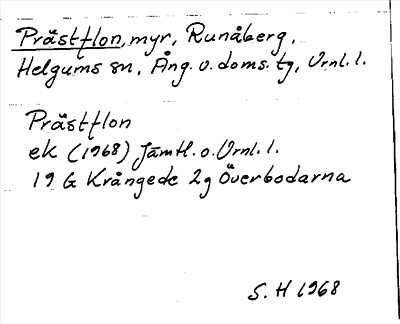 Prästflon, myr, Runåberg,
Helgums sn, Ång. v. doms. tg, Vrnl. l.
Prästflon
ek (1968) Jämtl. o. Vrnl. l.
19 G Krångede 2g Överbodarna
S. H 1968